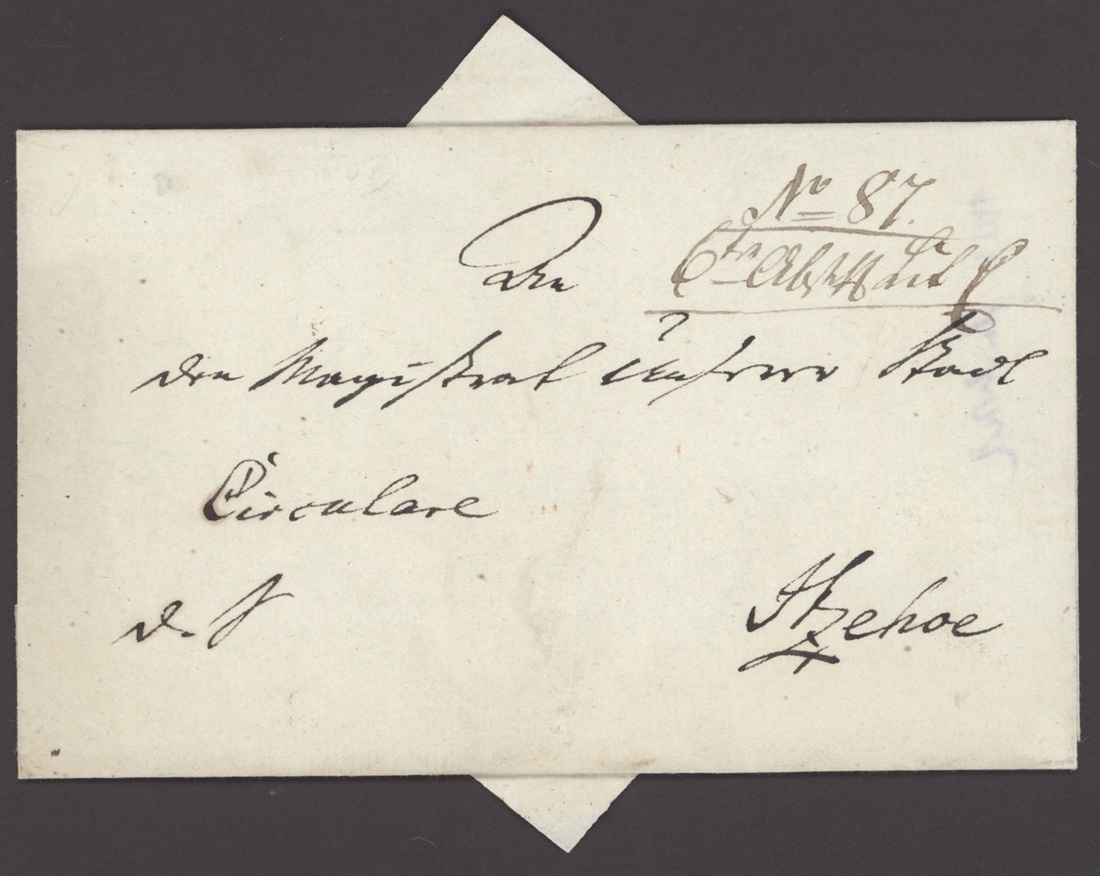 No 87.
An
den Magistrat Unserer Stadt
Circulare
d. S
Itzehoe